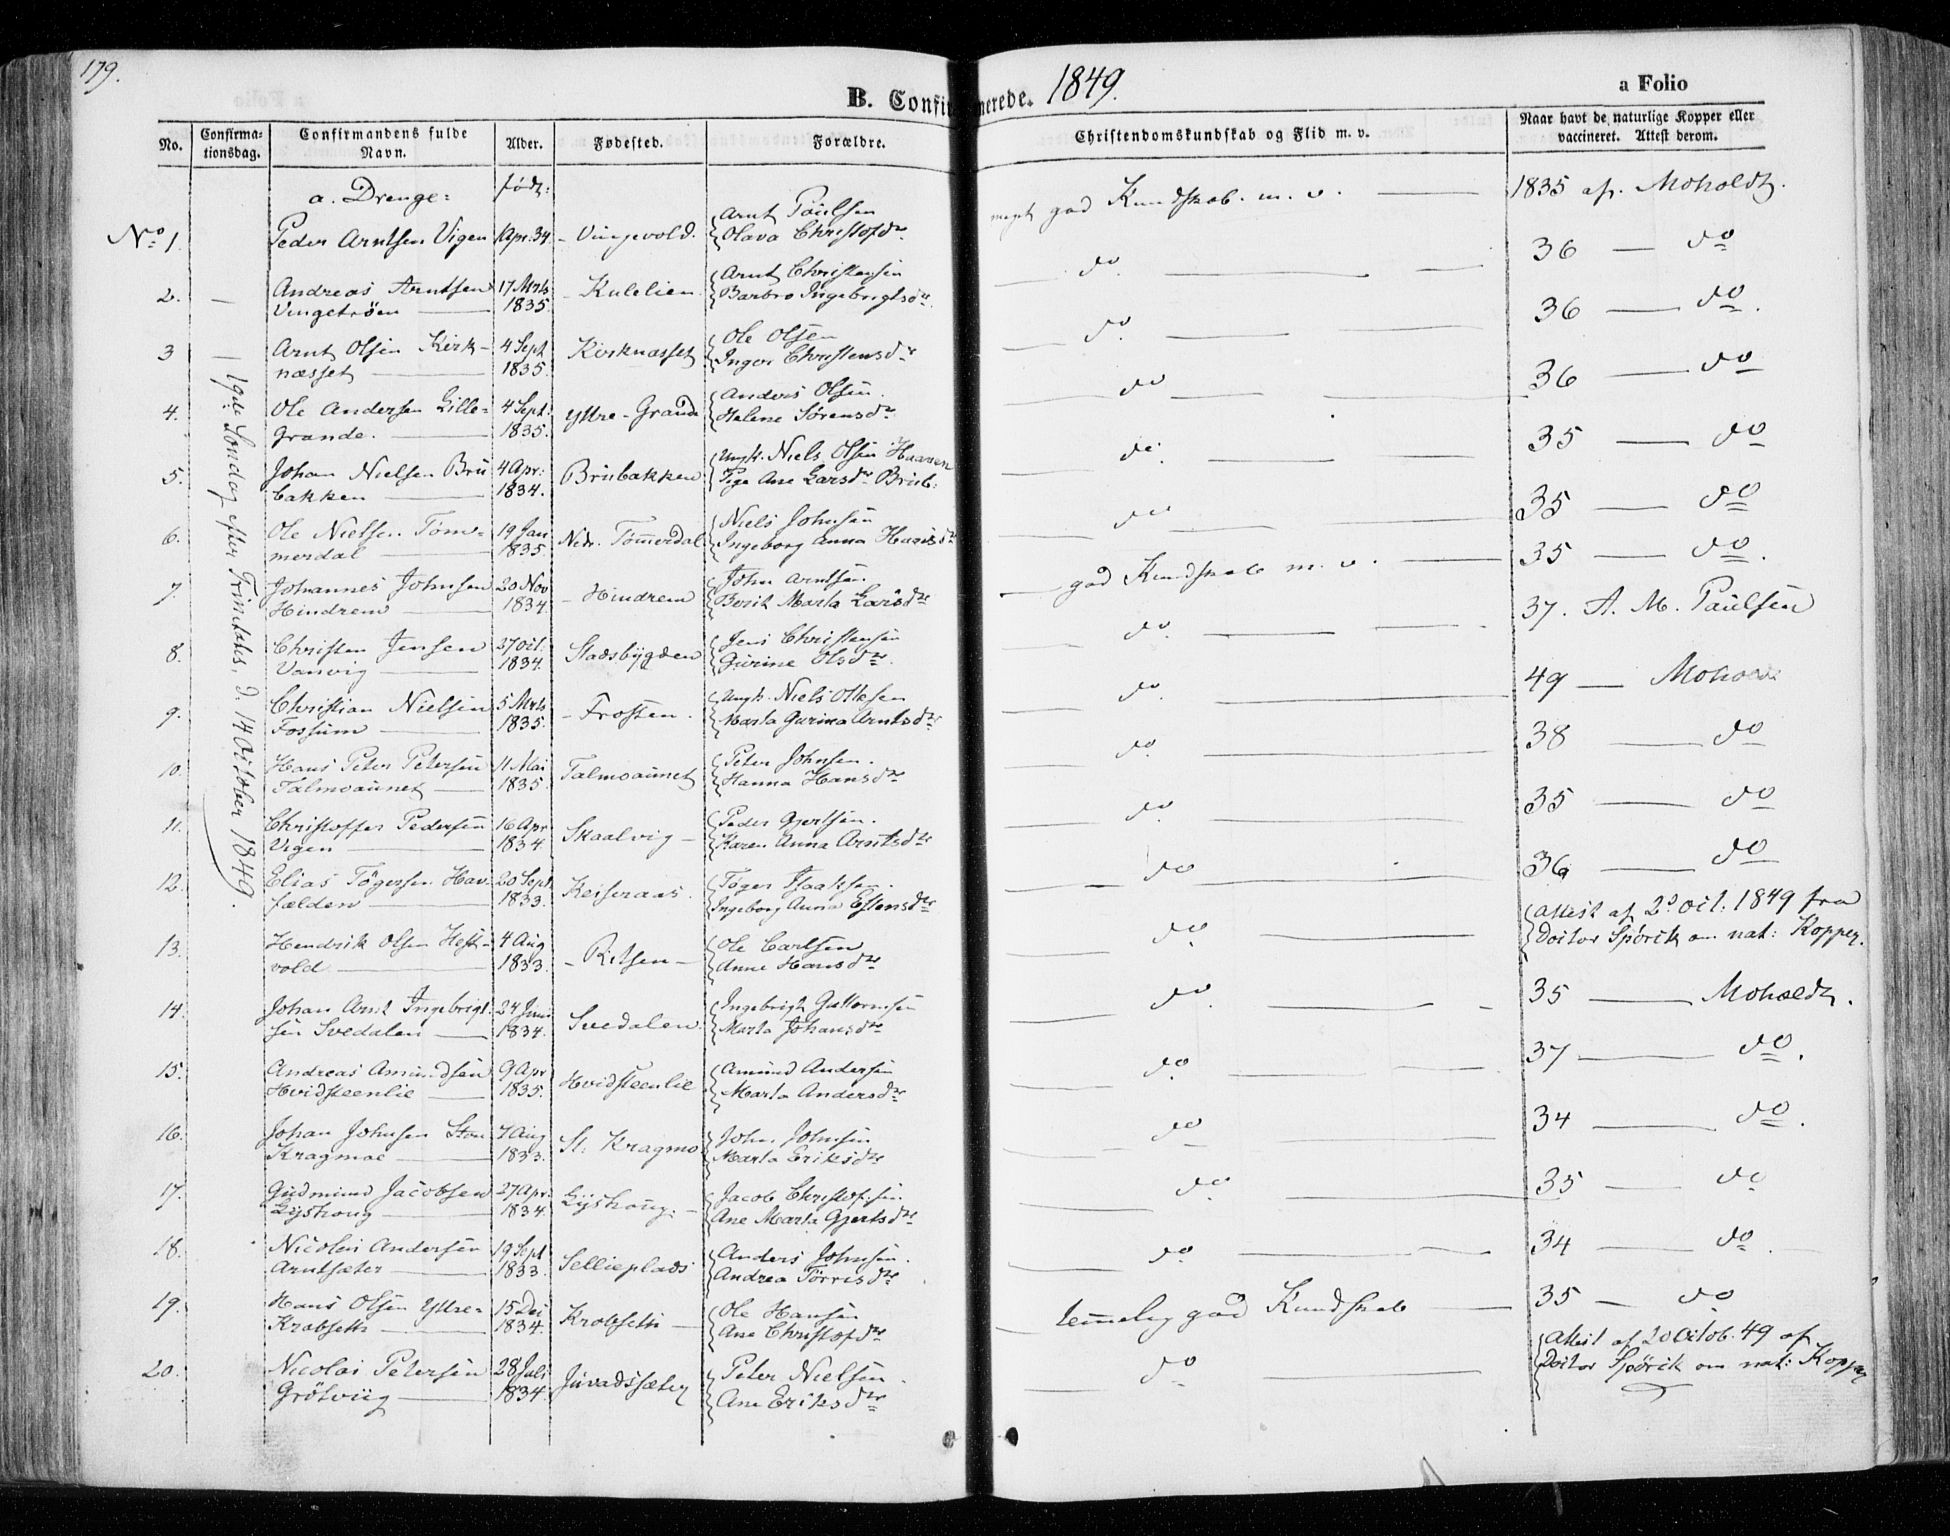 179.
B. Confirmerede. 1849.
a Folio
No.
Confirma-
tionsdag.
Confirmandens fulde
Navn.
Alder.
Fødested.
Forældre.
Christendomskundskab og Flid m. v.
Naar havt de naturlige Kopper eller
vaccineret. Attest derom.
a. Drenge:
født:
19de Søndag efter Trinitatis, d. 14 October 1849.
No 1. Peder Arntsen Vigen 1 Apr. 34 - Vingevold. Arnt Paulsen
Olava Christofdr
meget god Kundskab. m. v. 1835 af. Moholdt.
2. Andreas Arntsen 17 Mrts - Kulelien Arnt Christensen do 36 — do
Vingetrøen 1835 Barbro Ingebrigtsdr
3 Arnt Olsen Kirk- 4 Sept Kirknæsset Ole Olsen do 36 — do.
næsset 1835. Inger Christensdr
4. Ole Andersen Lille- 4 Sept. Yttre-Grande Anders Olsen. do 36 — do
Grande. 1835. Helene Sørensdr
5. Johan Nielsen Bru 4 Apr: Brubakken Ungk. Niels Olsen Haaven do. 35 — do
bakken 1834. Pige Ane Larsdr Brub:
6. Ole Nielsen Tøm- 19 Jan Nedr. Tømerdal Niels Johnsen do 35 — do
merdal 1835 Ingeborg Anna Hansdr
7. Johannes Johnsen 20 Nov - Hindrem John Arntsen. god Kundskab m. v. 35 — do.
Hindrem 1834. Berit Marta Larsdr
8. Christen Jensen 27 Oct. Stadsbygden Jens Christensen do. 37. A. M. Paulsen
Vanvig 1834. Gurine Olsdr.
9. Christian Nielsen 5 Mrts - Frosten. Ungk. Niels Ottesen do. 49 — Moholdt
Fossum 1835. Marta Gurina Arntsdr
10. Hans Peter Petersen 11 Mai Talmoaunet Peter Johnsen. do 38 — do
Talmoaunet 1835. Hanna Hansdr
11. Christoffer Pedersen 16 Apr Skaalvig - Peder Gjertsen. do. 35 — do
Vigen 1834 Karen Anna Arntsdr
12. Elias Tøgersen Hav- 20 Sept Keiseraas. Tøger Isaaksen. do 36 — do
fælden 1833. Ingeborg Anna Estensdr
13. Hendrik Olsen Hest- 4 Aug - Ritsen - Ole Carlsen do Attest af 2d Oct. 1849 fra
vold 1833. Anne Hansdr Doctor Spørck om nat: Kopper.
14. Johan Arnt Ingebrigt- 24 Juni Svedalen. Ingebrigt Guttormsen do. 35 — Moholdt.
sen Svedalen 1834. Marta Johansdr
15. Andreas Amundsen 9 Apr Hvidsteenlie Amund Andersen do 37 — do.
Hvidsteenlie 1835. Marta Andersdr
16. Johan Johnsen Stor 7 Aug St. Kragmo John Johnsen do 34 — do.
Kragmoe 1833. Marta Eriksdr
17. Gudmund Jacobsen 27 Apr. Lyshoug. - Jacob Christofsen. do 35 — do
Lyshoug 1834. Ane Marta Gjertsdr
18. Nicolai Andersen 19 Sept Sellieplads Anders Johnsen. do 34 — do.
Arntsæter 1833. Andrea Tørrisdr
19. Hans Olsen Yttre- 15 Dec Krobseth - Ole Hansen temelig god Kundskab 35 — do
Krobseth 1834. Ane Christofdr
20. Nicolai Petersen 28 Juli Juvadssæter Peter Nielsen. do Attest af 20 Octob. 49 af
Grøtviig 1834. Ane Eriksdr Doctor Spørck om nat: Kopper